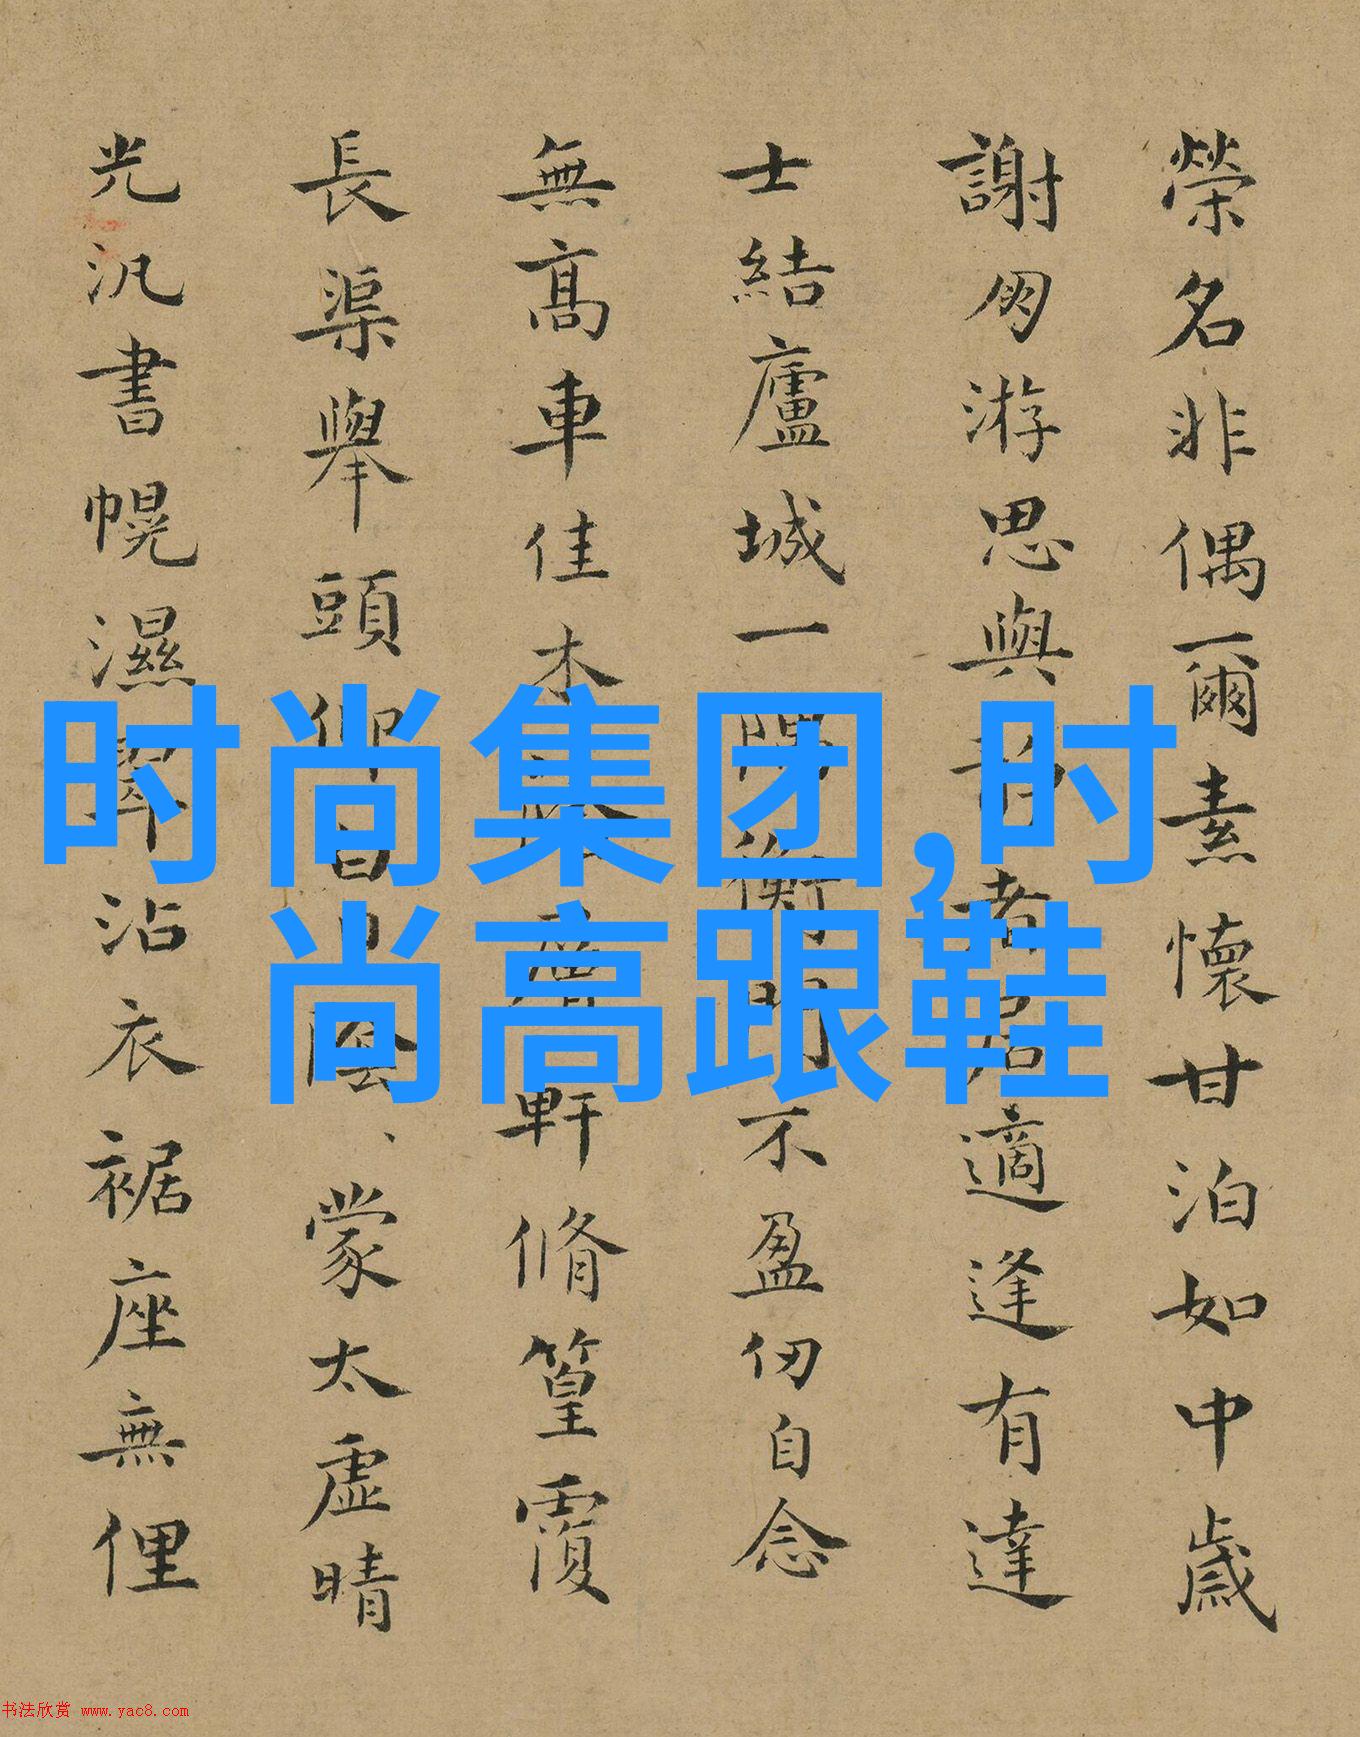 榮名非偶爾素懷甘泊如中歲
謝朋游思與者居適逢有達
士結廬城一隅衡門不盈仞自念
無高車佳木廕軒脩篁覆
長渠舉頭仰陰蒙太虛晴
光汎書幌濕翠沾衣裾座無俚
时尚集团,时
尚高跟鞋
书法欣赏 www.yac8.com